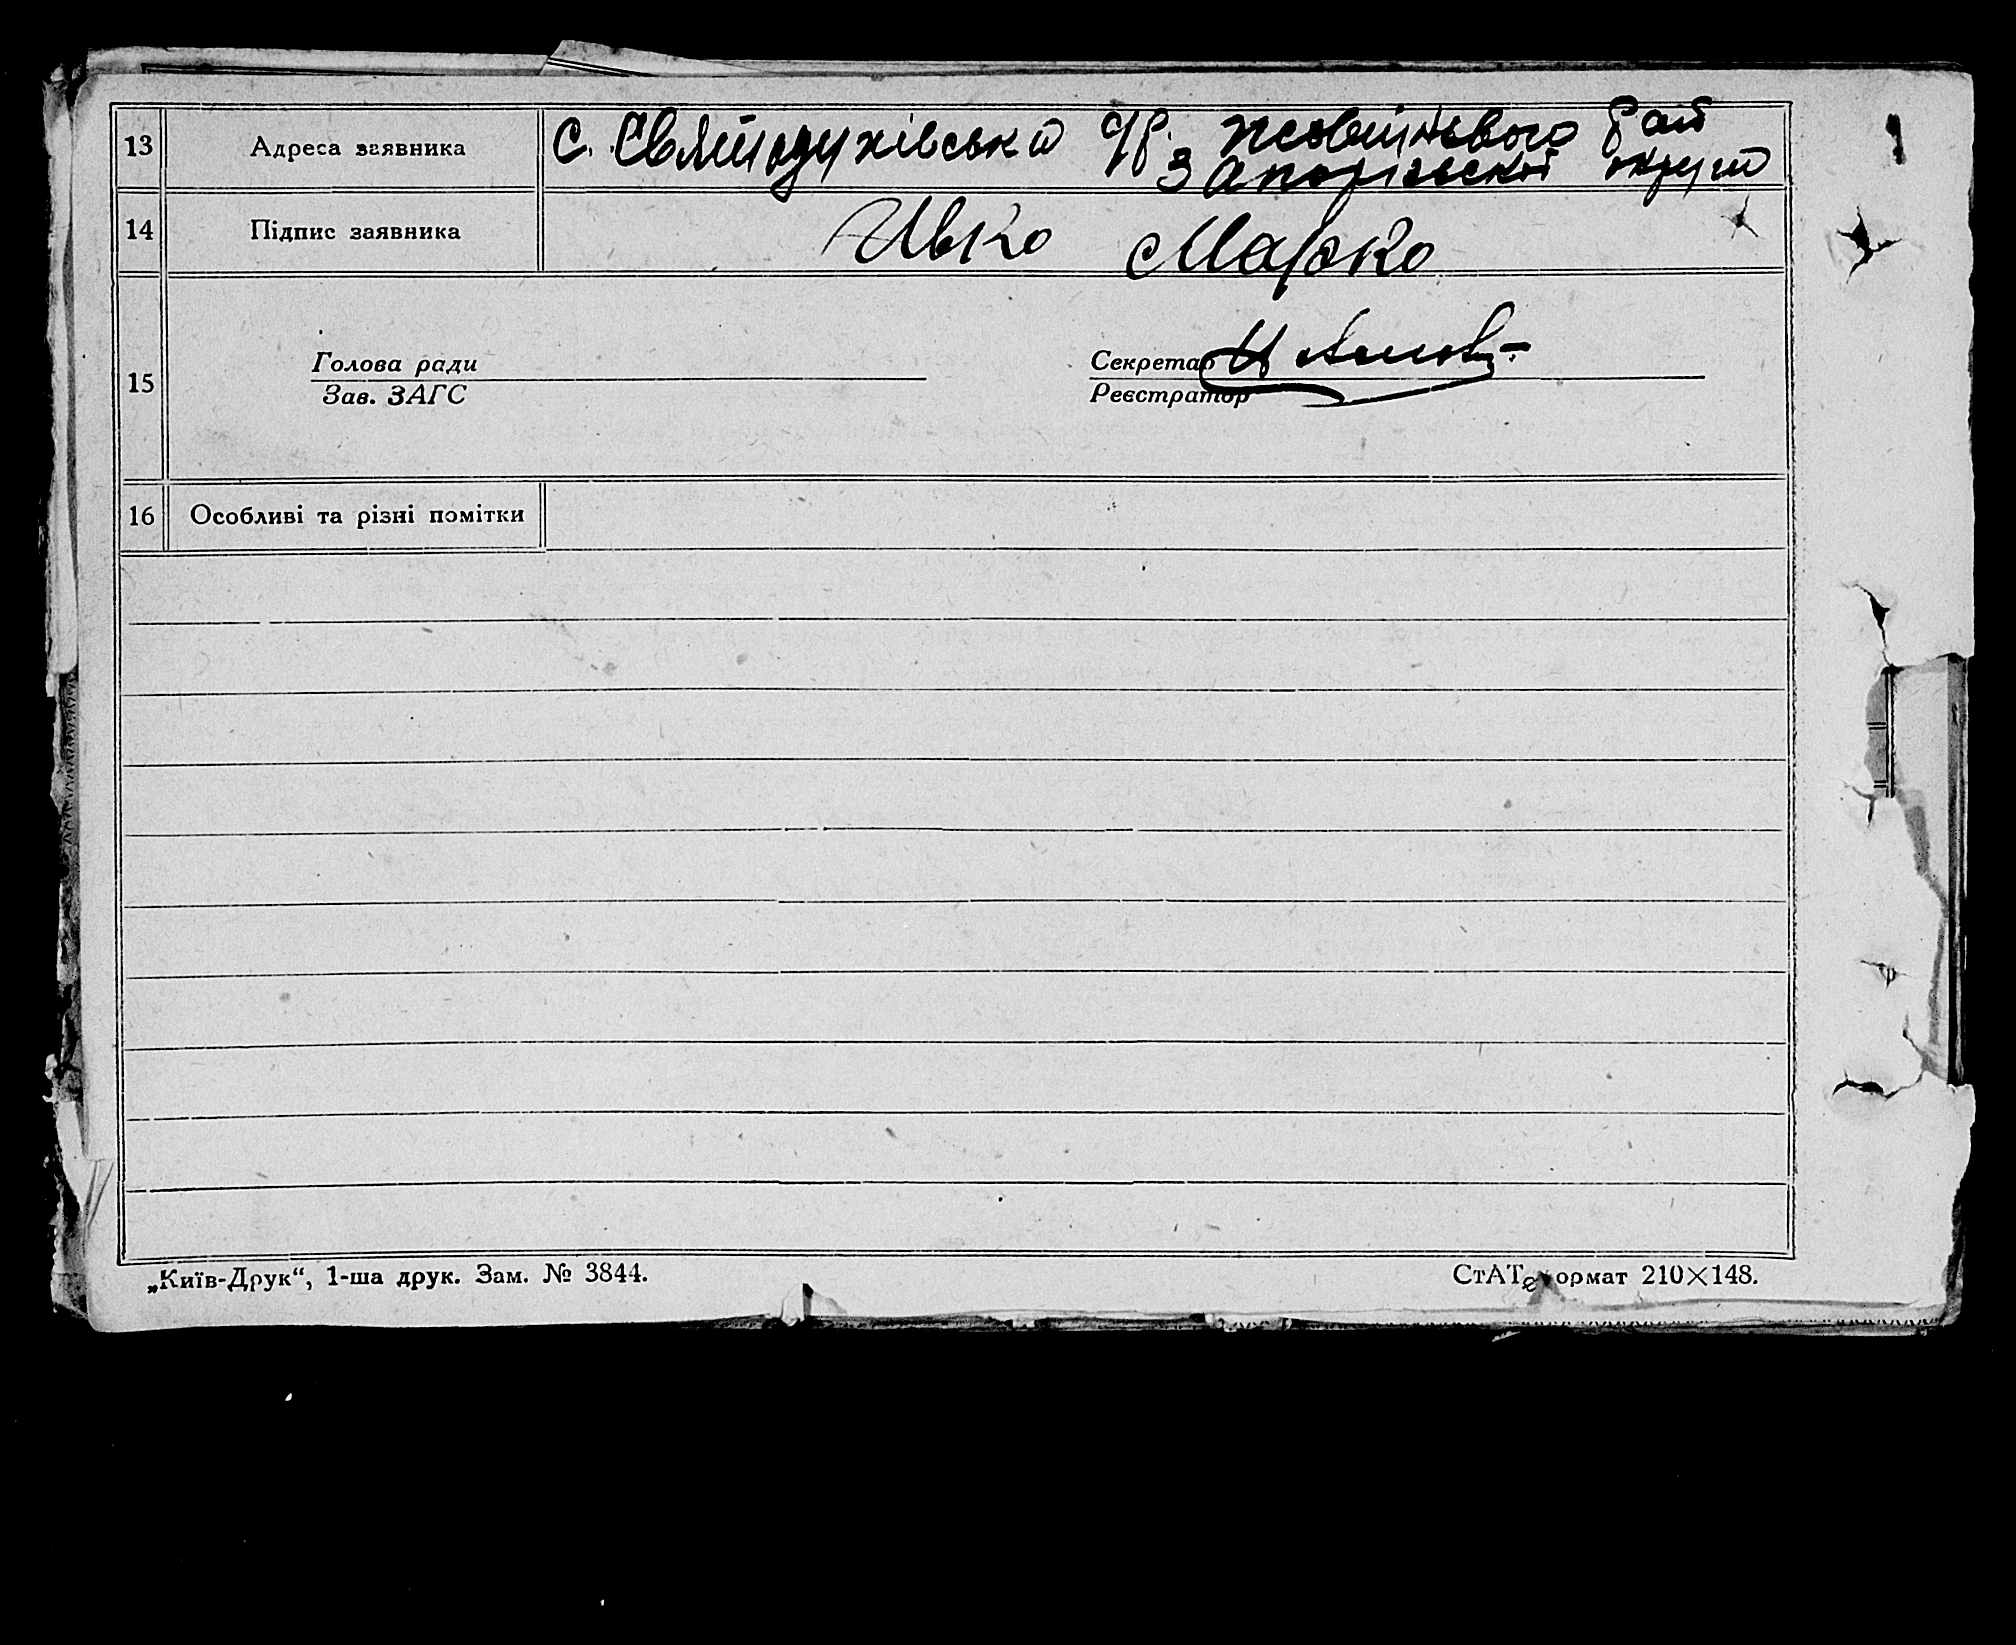 13 Адреса заявника с. Святодухівська с/р. Жовтневого рай
Запорізської округи
14 Підпис заявника Ивко Марко
Голова ради Секретар
15
Зав. ЗАГС Реєстратор
16 Особливі та різні помітки
„Київ-Друк“, 1-ша друк. Зам. № 3844. СтАТ ормат 210×148.